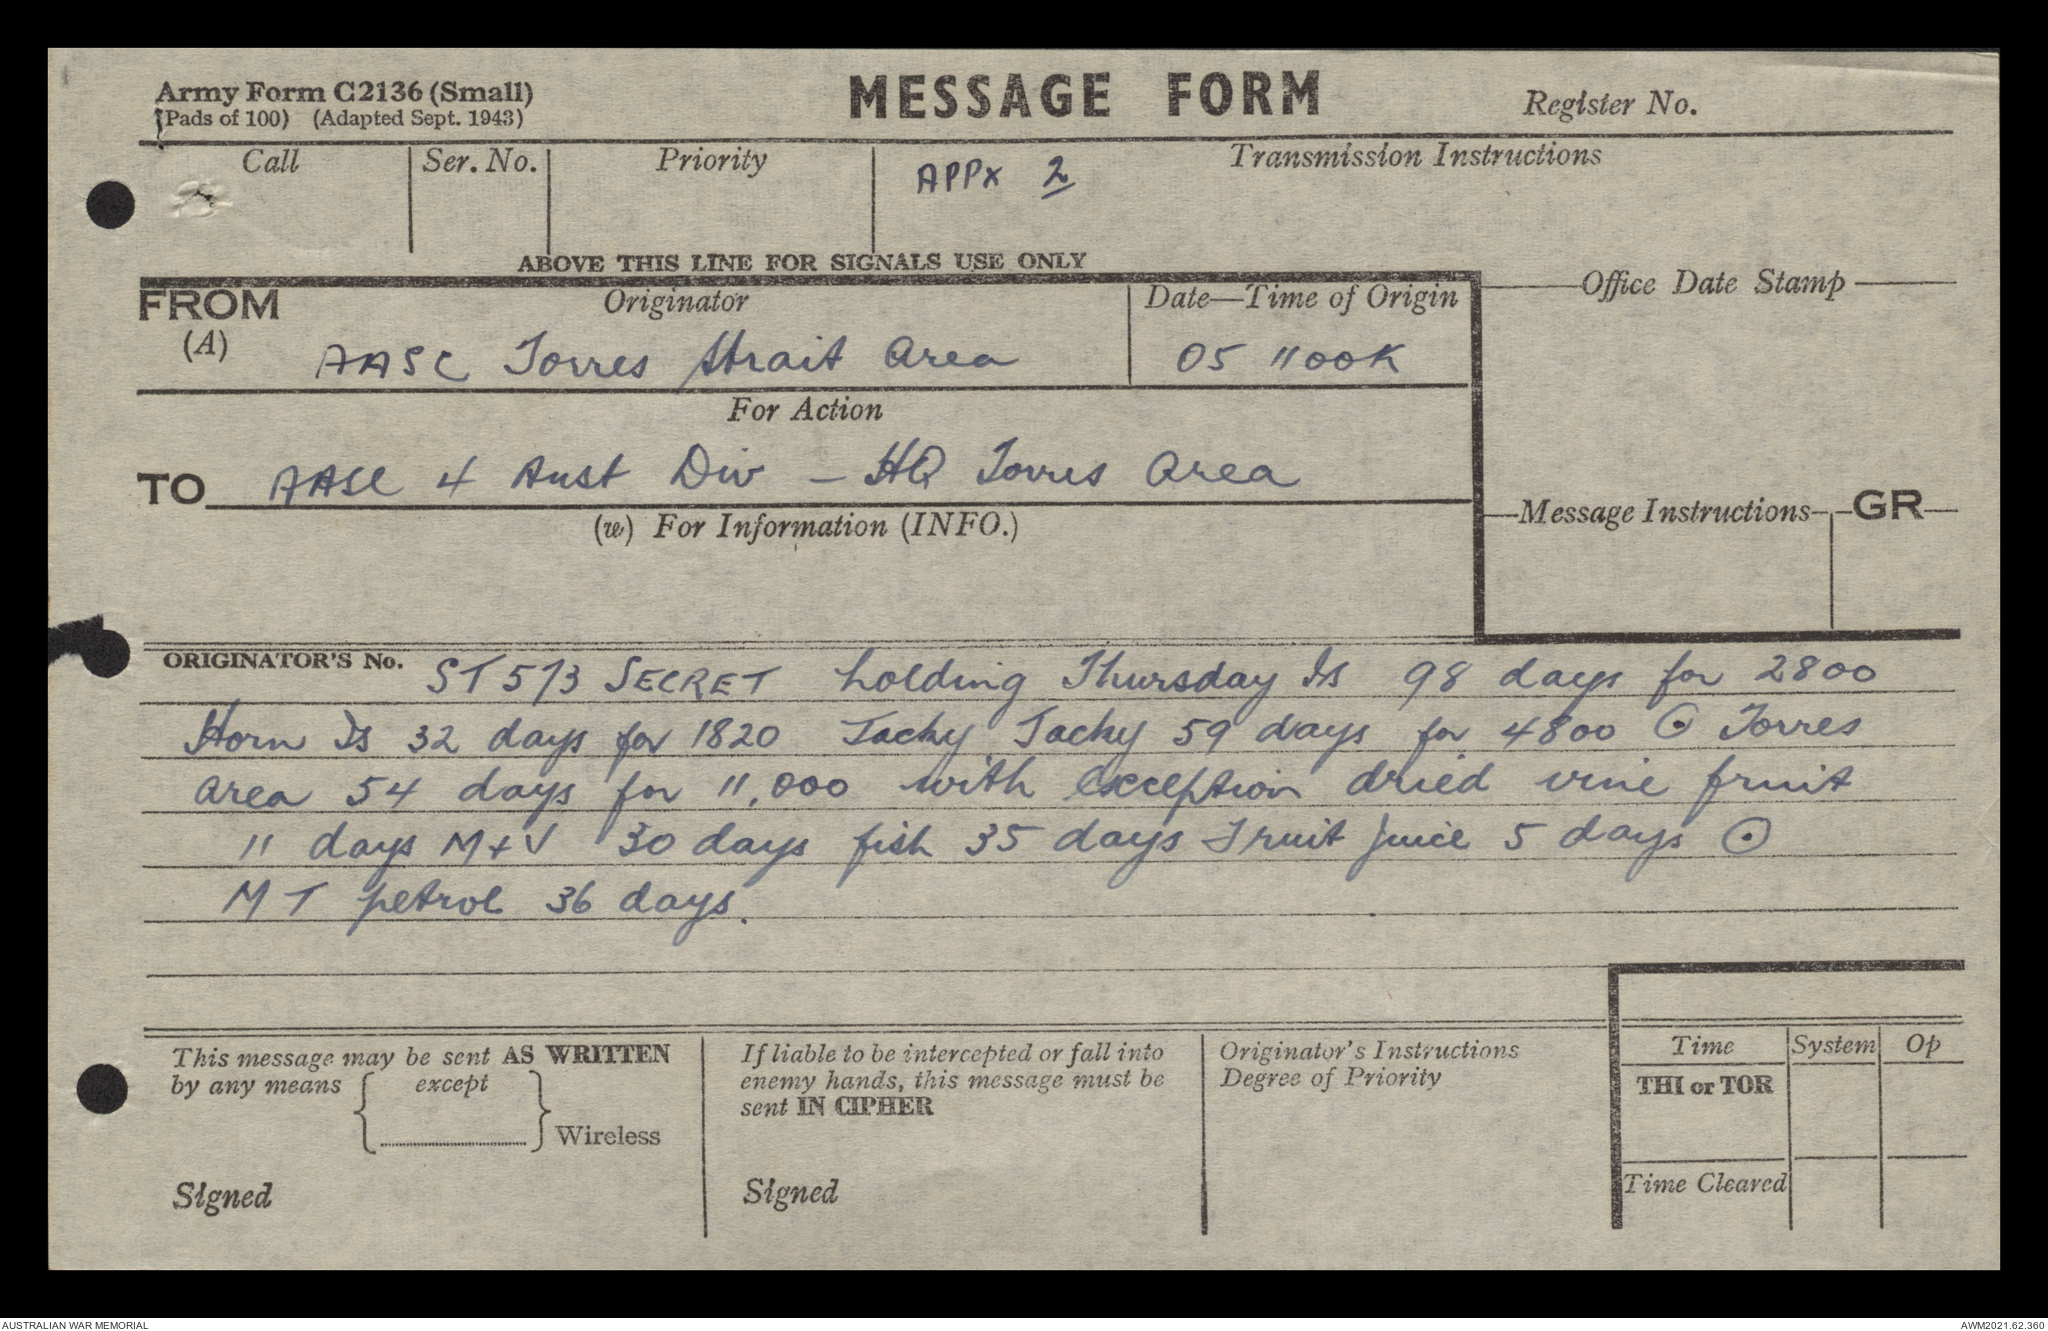 Army Form C2136 (Small)
(Pads of 100) (Adapted Sept. 1943)
MESSAGE FORM
Register No.
Call
Ser. No.
Priority
APPX 2
Transmission Instructions
ABOVE THIS LINE FOR SIGNALS USE ONLY
FROM
(A)
Originator
AASC Torres Strait Area
Date—Time of Origin
05 1100K
Office Date Stamp
For Action
TO AASC 4 Aust Div - HQ Torres Area
(w) For Information (INFO.)
Message Instructions
GR
ORIGINATOR'S No. ST573 SECRET holding Thursday Is 98 days for 2800
Horn Is 32 days for 1820 Jacky Jacky 59 days for 4800 ⊙ Torres
Area 54 days for 11,000 with exception dried vine fruit
11 days M+V 30 days fish 35 days Fruit juice 5 days ⊙
MT petrol 36 days.
This message may be sent AS WRITTEN
by any means { except
} Wireless
Signed
If liable to be intercepted or fall into
enemy hands, this message must be
sent IN CIPHER
Signed
Originator's Instructions
Degree of Priority
Time
System
Op
THI or TOR
Time Cleared
AUSTRALIAN WAR MEMORIAL
AWM2021.62.360